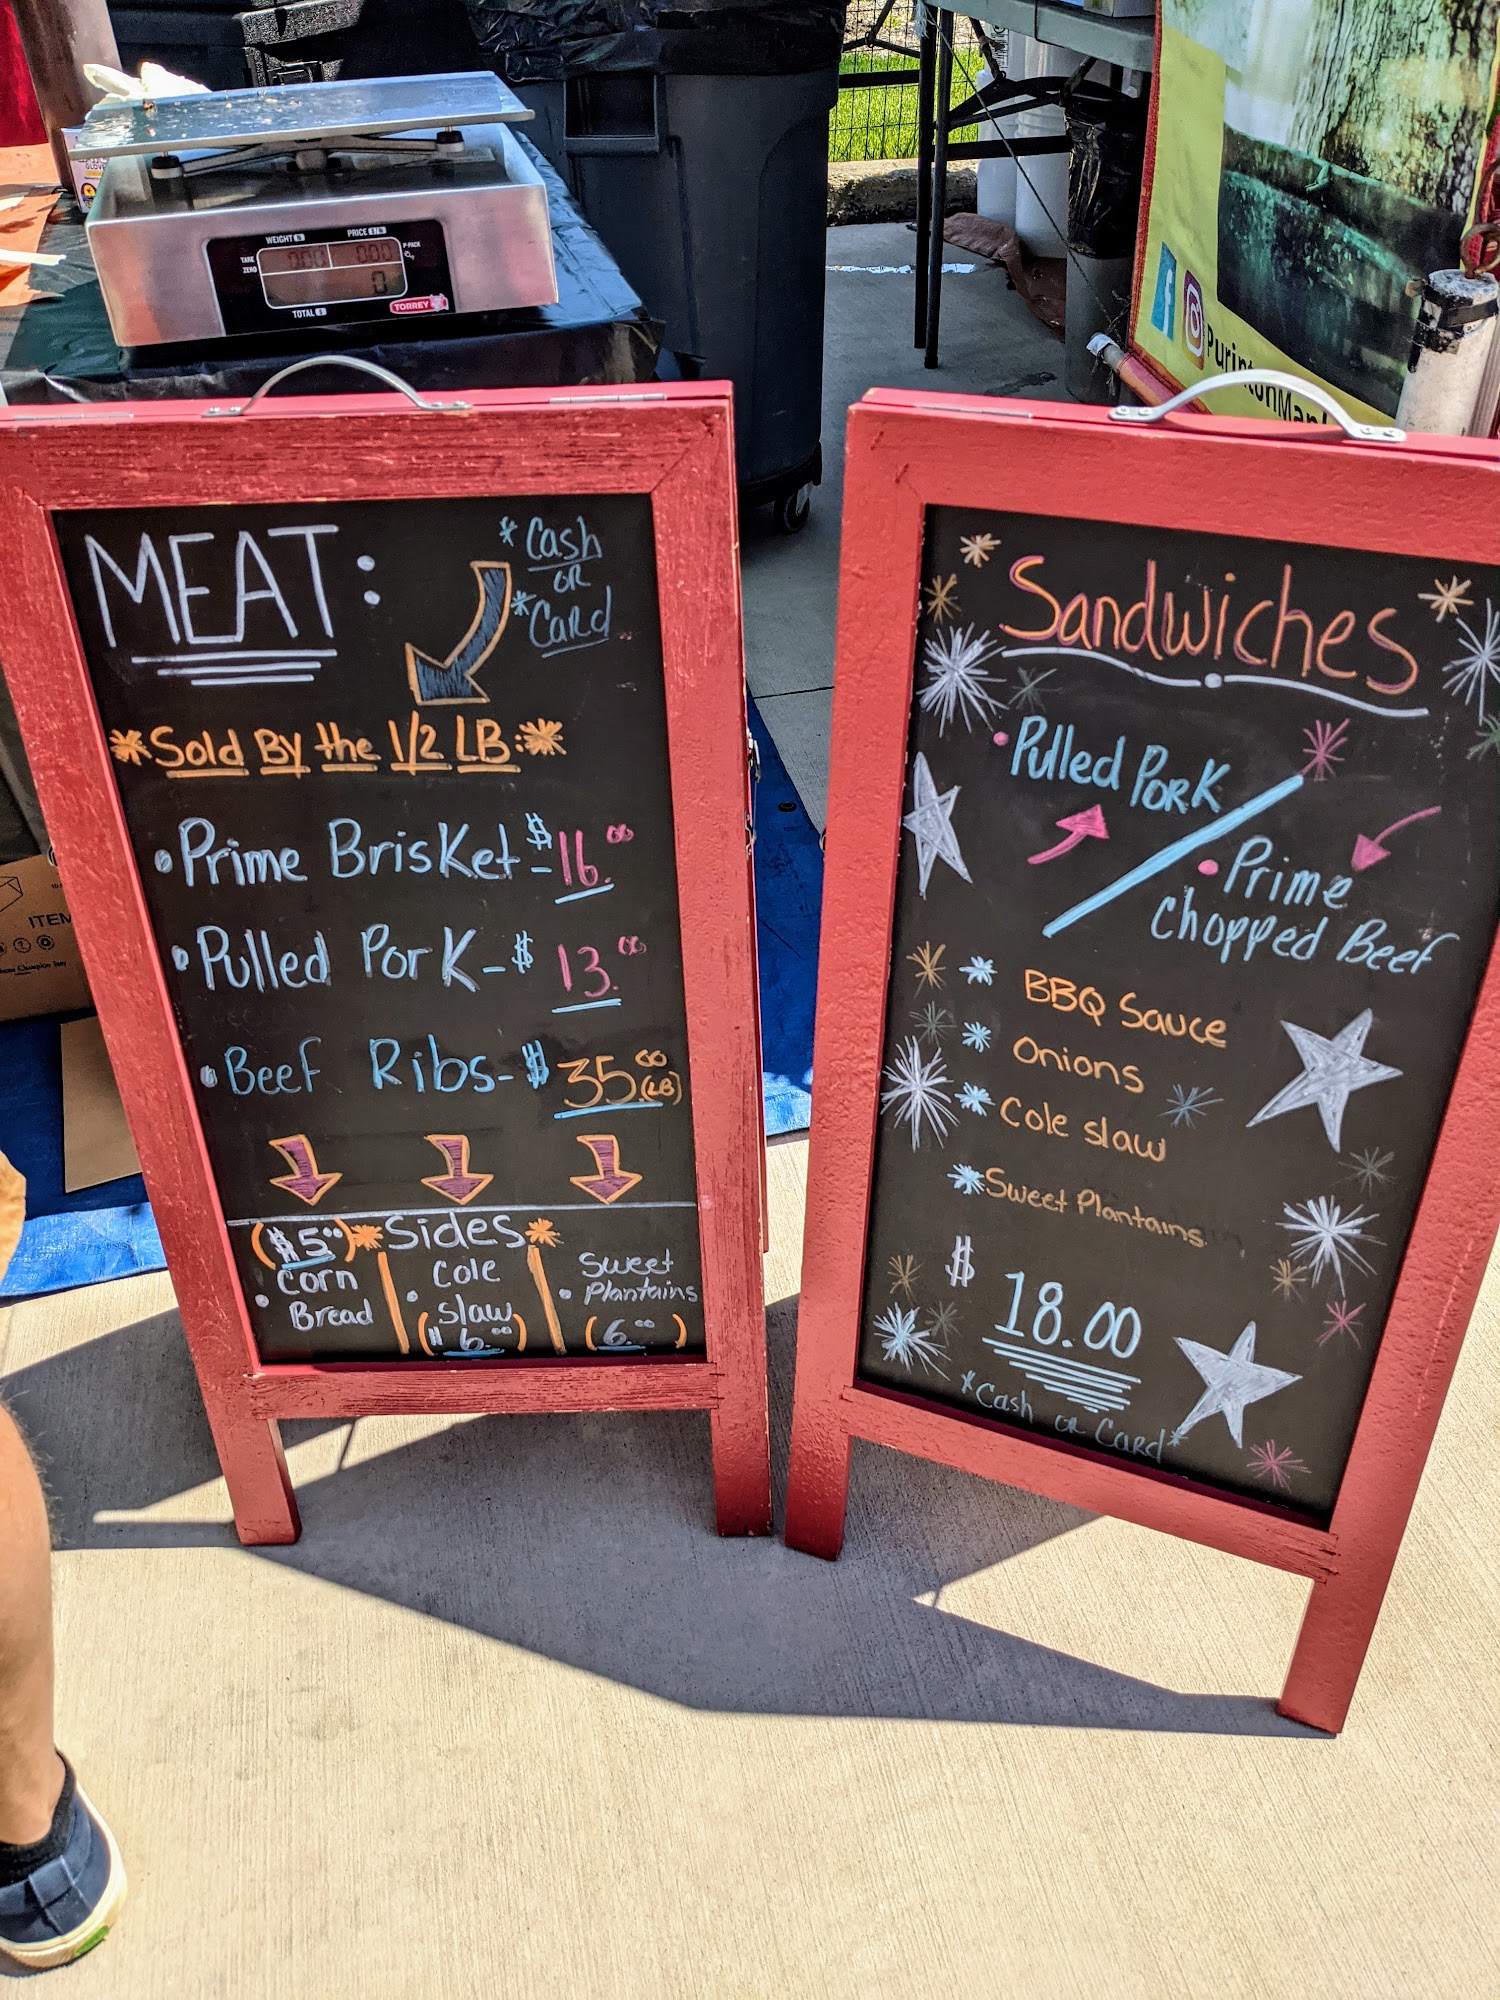 WEIGHT lb
PRICE $/lb
TARE
ZERO
TOTAL $
TORREY
PurintonMan
ITEM
MEAT:
* Cash
or
* Card
*Sold By the 1/2 LB:*
• Prime Brisket - $16.00
• Pulled Pork - $13.00
• Beef Ribs - $35.00 (LB)
($5.00) * Sides *
• Corn Bread
• Cole Slaw
($6.00)
• Sweet Plantains
(6.00)
Sandwiches
• Pulled Pork
/
• Prime
Chopped Beef
* BBQ Sauce
* Onions
* Cole slaw
* Sweet Plantains
$
18.00
*Cash or Card*